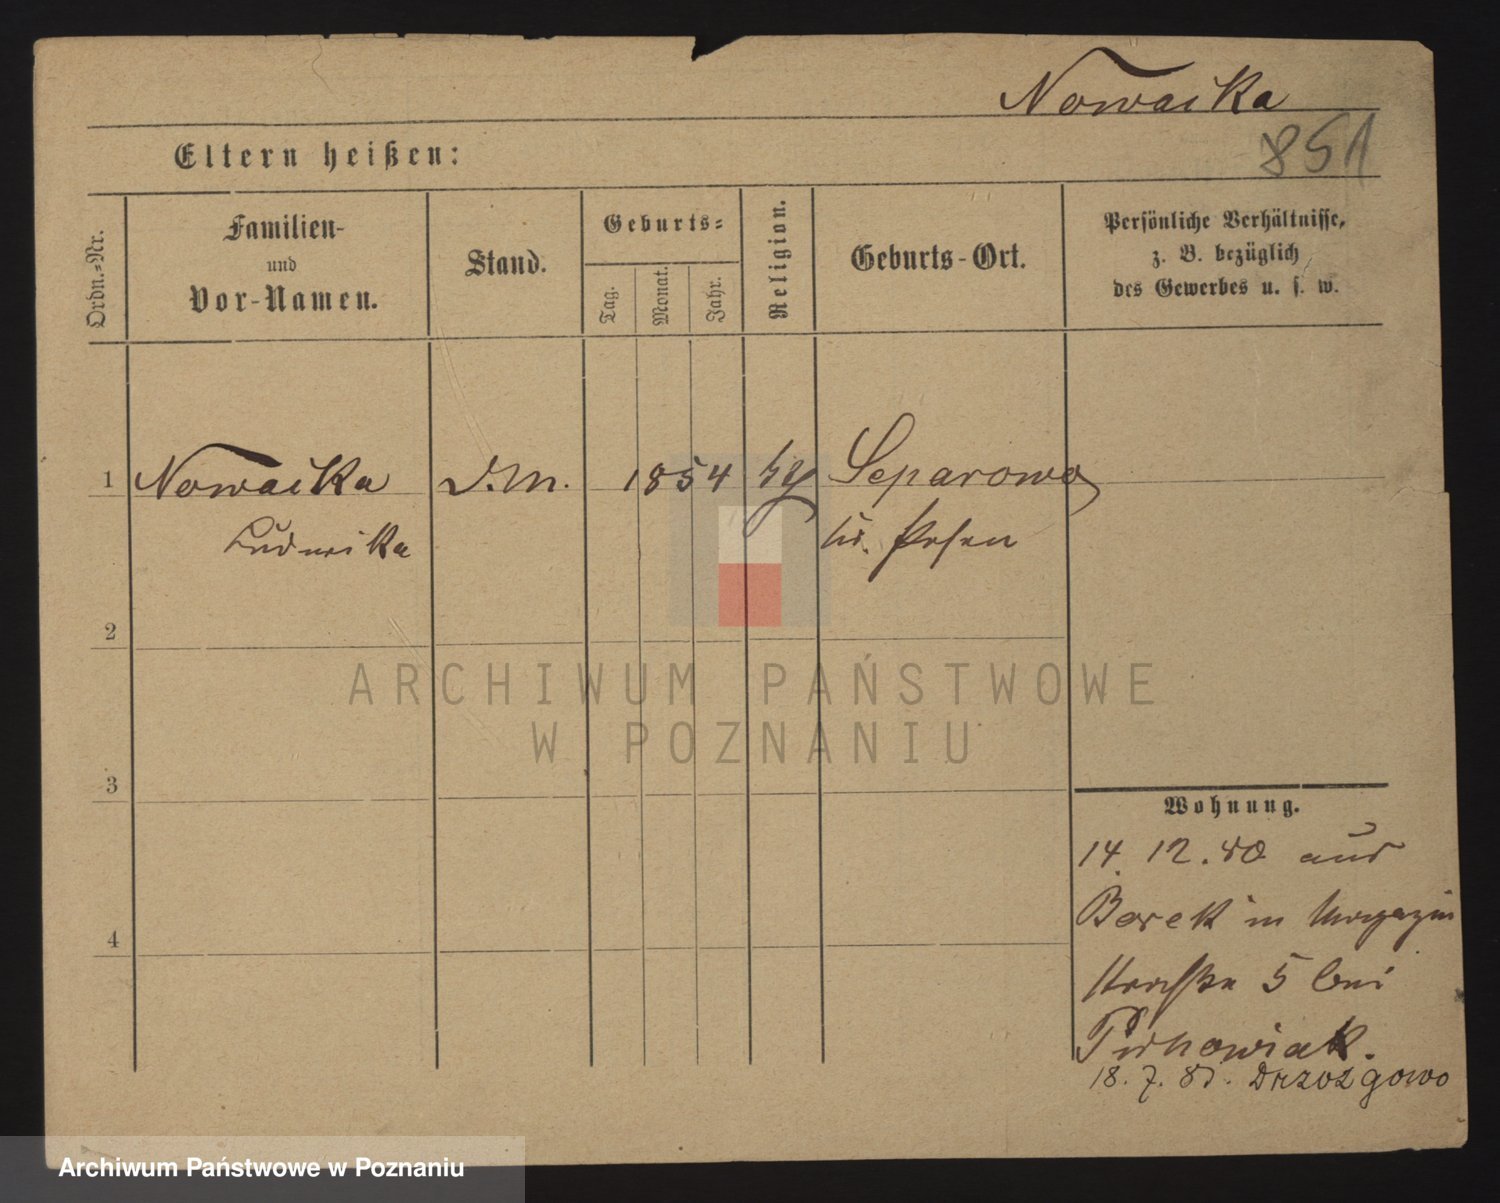 Nowacka
851
Eltern heißen:
Ordn.-Nr.
Familien-
und
Vor-Namen.
Stand.
Geburts-
Tag.
Monat.
Jahr.
Religion.
Geburts-Ort.
Persönliche Verhältnisse,
z. B. bezüglich
des Gewerbes u. s. w.
1
Nowacka
D.M.
1854
Separowo
Ludwika
kr. Posen
2
3
4
Wohnung.
14. 12. 80 aus
Borek in Magazin
Straße 5 bei
18. 7. 81. Drzozgowo
ARCHIWUM PAŃSTWOWE
W POZNANIU
Archiwum Państwowe w Poznaniu